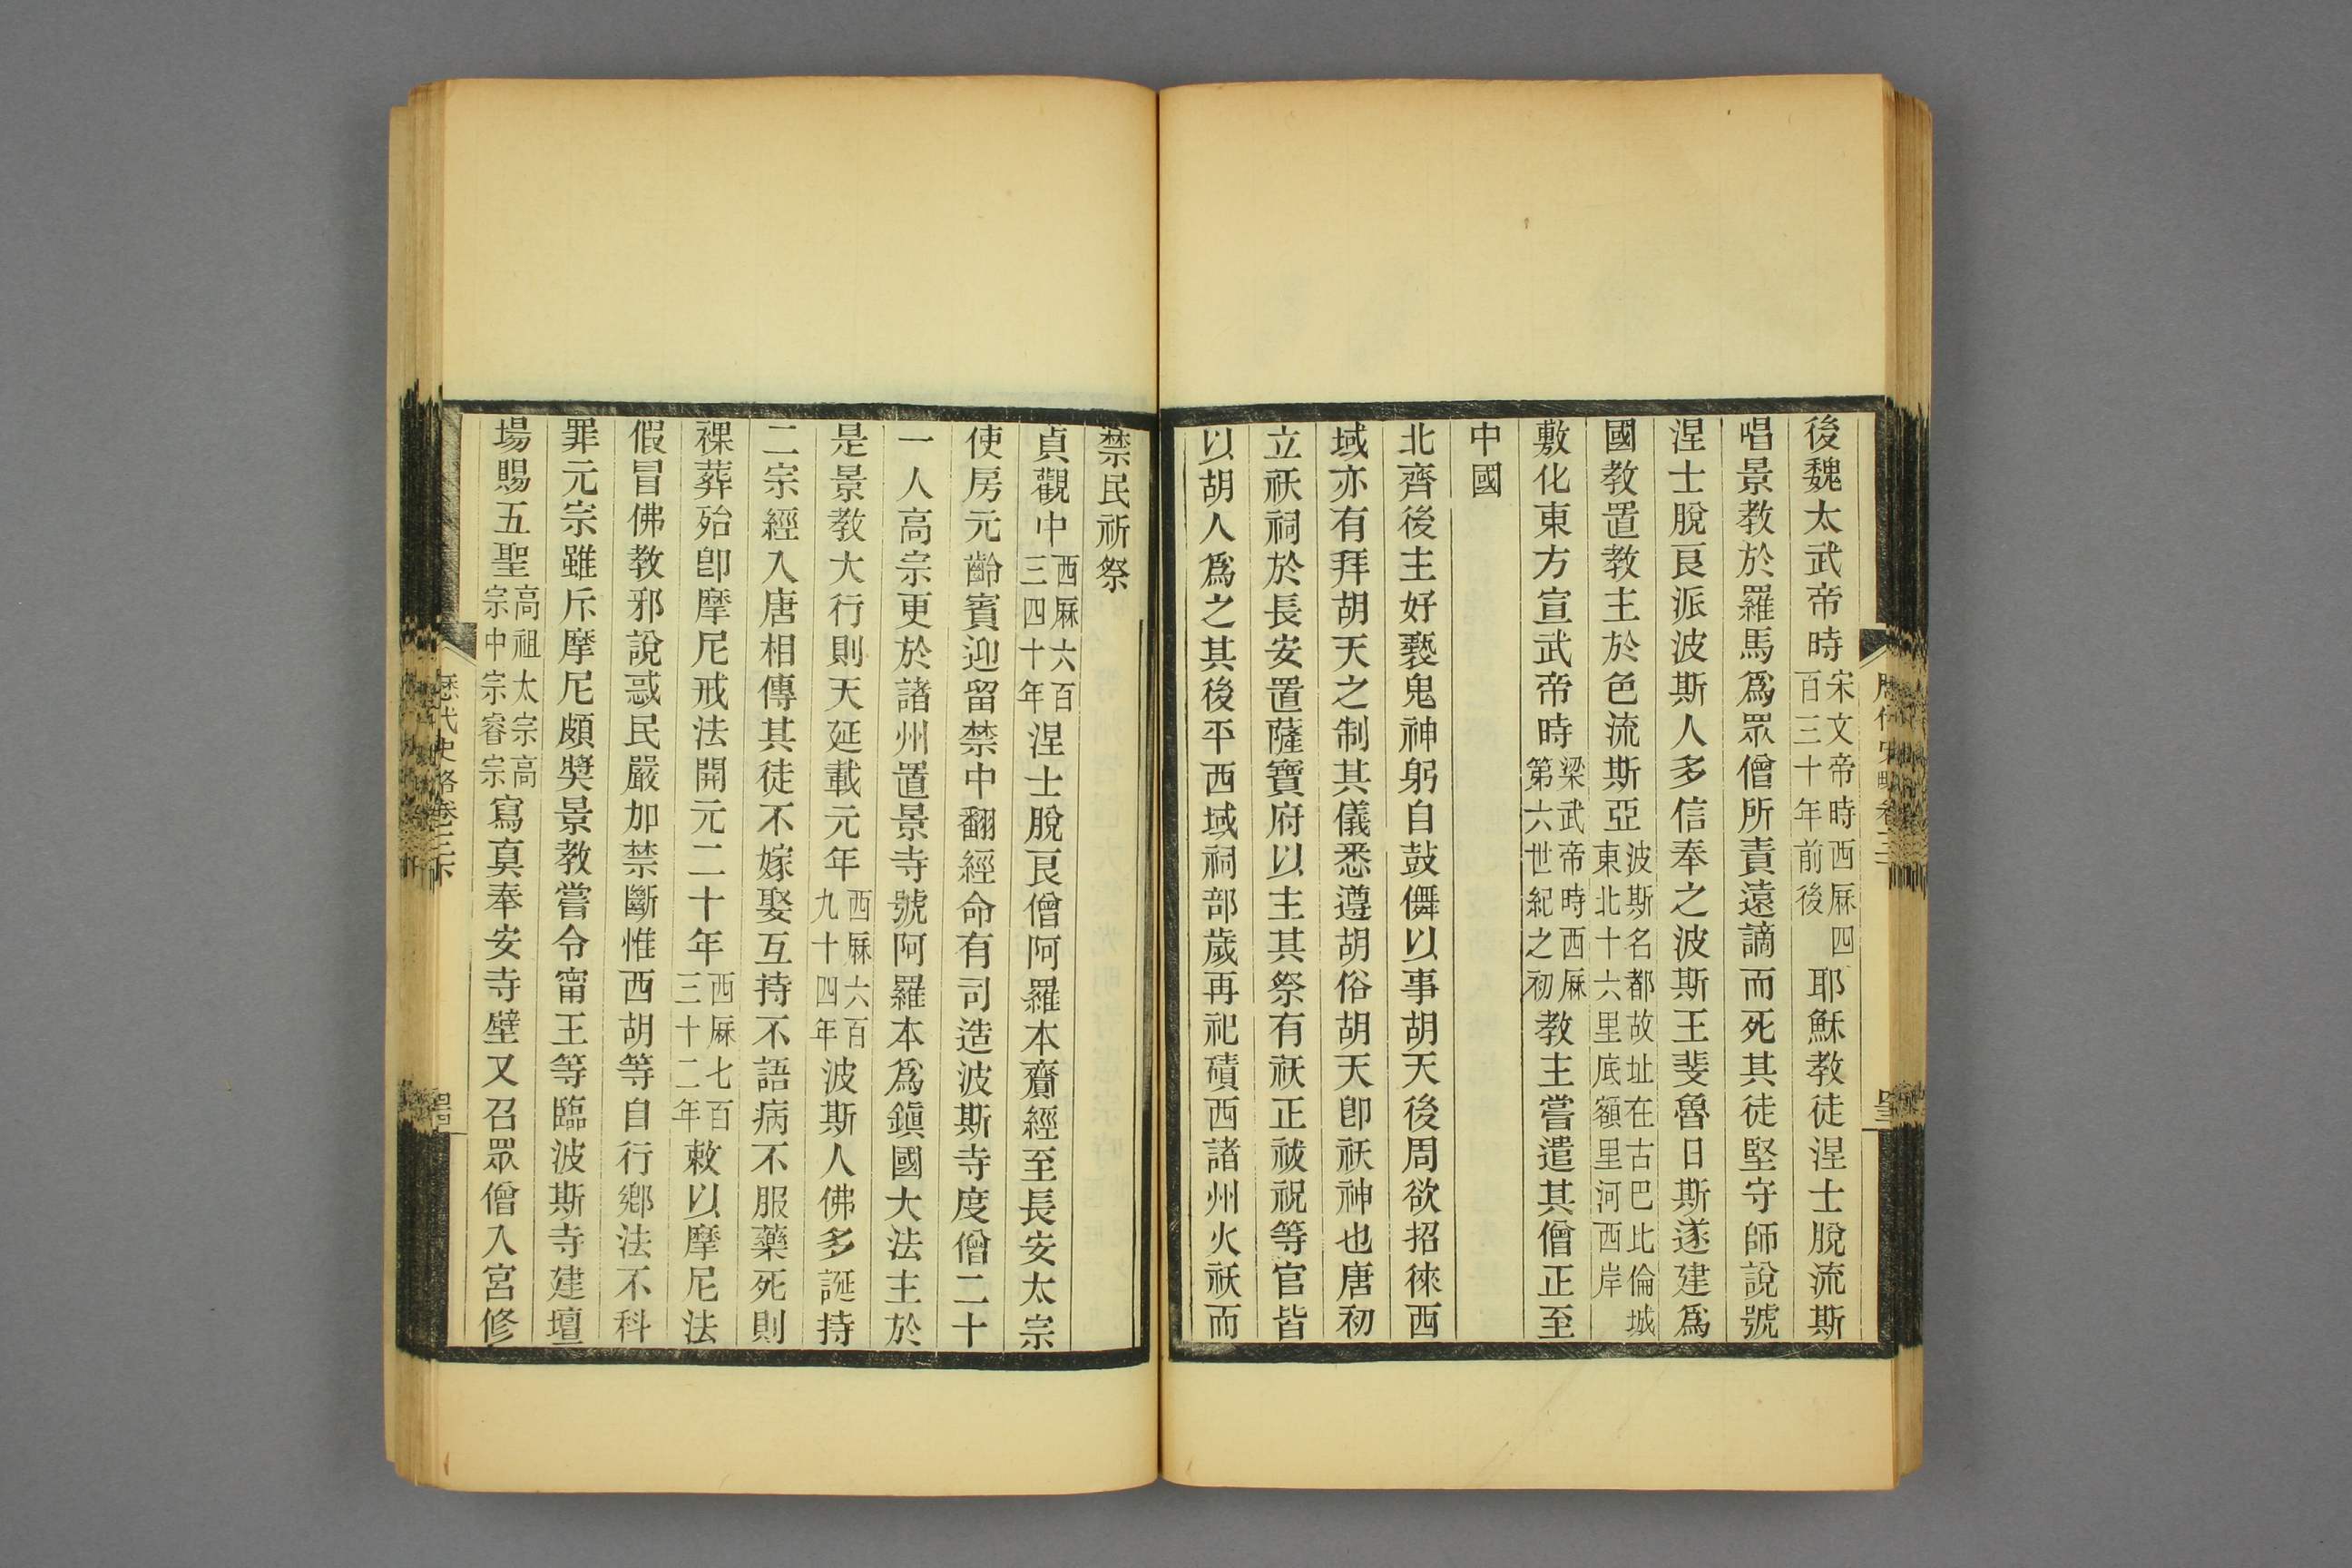 後魏太武帝時宋文帝時西厤四百三十年前後耶穌教徒涅士脫流斯
唱景教於羅馬爲眾僧所責遠謫而死其徒堅守師說號
涅士脫良派波斯人多信奉之波斯王斐魯日斯遂建爲
國教置教主於色流斯亞波斯名都故址在古巴比倫城東北十六里底額里河西岸
敷化東方宣武帝時梁武帝時西厤第六世紀之初教主嘗遣其僧正至
中國
北齊後主好褻鬼神躬自鼓儛以事胡天後周欲招徠西
域亦有拜胡天之制其儀悉遵胡俗胡天卽祆神也唐初
立祆祠於長安置薩寶府以主其祭有祆正祓祝等官皆
以胡人爲之其後平西域祠部歲再祀磧西諸州火祆而
禁民祈祭
貞觀中西厤六百三四十年涅士脫良僧阿羅本齎經至長安太宗
使房元齡賓迎留禁中翻經命有司造波斯寺度僧二十
一人高宗更於諸州置景寺號阿羅本爲鎭國大法主於
是景教大行則天延載元年西厤六百九十四年波斯人佛多誕持
二宗經入唐相傳其徒不嫁娶互持不語病不服藥死則
裸葬殆卽摩尼戒法開元二十年西厤七百三十二年敕以摩尼法
假冒佛教邪說惑民嚴加禁斷惟西胡等自行鄕法不科
罪元宗雖斥摩尼頗奬景教嘗令甯王等臨波斯寺建壇
場賜五聖高祖太宗高宗中宗睿宗寫眞奉安寺壁又召眾僧入宮修
歷代史略卷三下